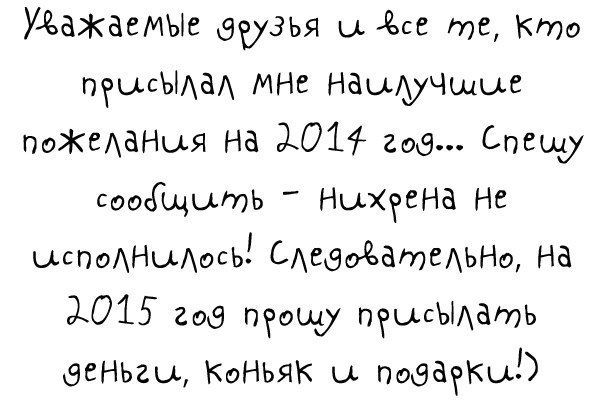 Уважаемые друзья и все те, кто
присылал мне наилучшие
пожелания на 2014 год... Спешу
сообщить - нихрена не
исполнилось! Следовательно, на
2015 год прошу присылать
деньги, коньяк и подарки!)